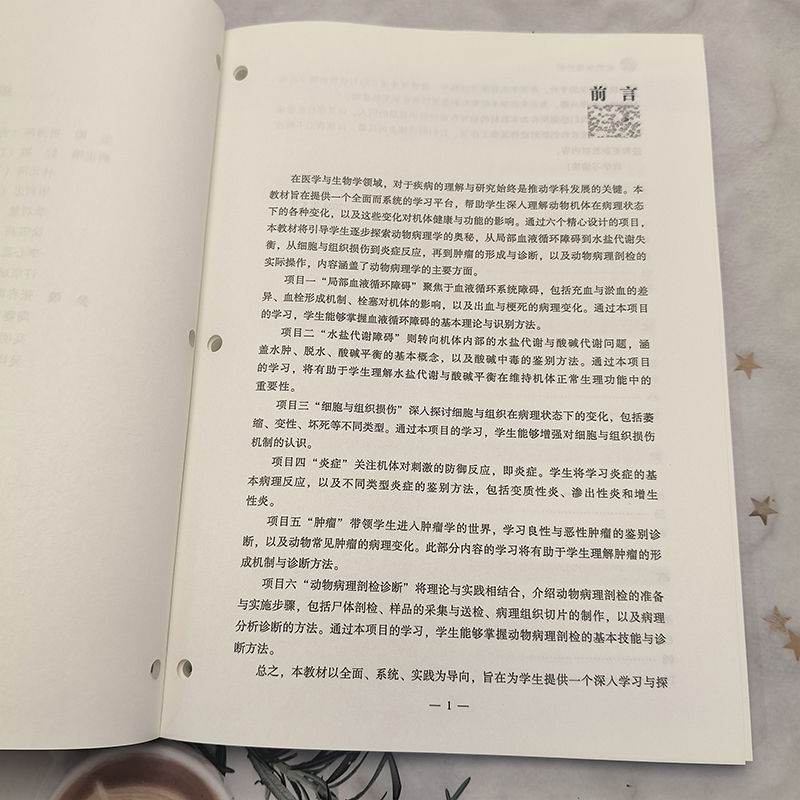 前 言
在医学与生物学领域，对于疾病的理解与研究始终是推动学科发展的关键。本
教材旨在提供一个全面而系统的学习平台，帮助学生深入理解动物机体在病理状态
下的各种变化，以及这些变化对机体健康与功能的影响。通过六个精心设计的项目，
本教材将引导学生逐步探索动物病理学的奥秘，从局部血液循环障碍到水盐代谢失
衡，从细胞与组织损伤到炎症反应，再到肿瘤的形成与诊断，以及动物病理剖检的
实际操作，内容涵盖了动物病理学的主要方面。
项目一“局部血液循环障碍”聚焦于血液循环系统障碍，包括充血与淤血的差
异、血栓形成机制、栓塞对机体的影响，以及出血与梗死的病理变化。通过本项目
的学习，学生能够掌握血液循环障碍的基本理论与识别方法。
项目二“水盐代谢障碍”则转向机体内部的水盐代谢与酸碱代谢问题，涵
盖水肿、脱水、酸碱平衡的基本概念，以及酸碱中毒的鉴别方法。通过本项目
的学习，将有助于学生理解水盐代谢与酸碱平衡在维持机体正常生理功能中的
重要性。
项目三“细胞与组织损伤”深入探讨细胞与组织在病理状态下的变化，包括萎
缩、变性、坏死等不同类型。通过本项目的学习，学生能够增强对细胞与组织损伤
机制的认识。
项目四“炎症”关注机体对刺激的防御反应，即炎症。学生将学习炎症的基
本病理反应，以及不同类型炎症的鉴别方法，包括变质性炎、渗出性炎和增生
性炎。
项目五“肿瘤”带领学生进入肿瘤学的世界，学习良性与恶性肿瘤的鉴别诊
断，以及动物常见肿瘤的病理变化。此部分内容的学习将有助于学生理解肿瘤的形
成机制与诊断方法。
项目六“动物病理剖检诊断”将理论与实践相结合，介绍动物病理剖检的准备
与实施步骤，包括尸体剖检、样品的采集与送检、病理组织切片的制作，以及病理
分析诊断的方法。通过本项目的学习，学生能够掌握动物病理剖检的基本技能与诊
断方法。
总之，本教材以全面、系统、实践为导向，旨在为学生提供一个深入学习与探
— 1 —